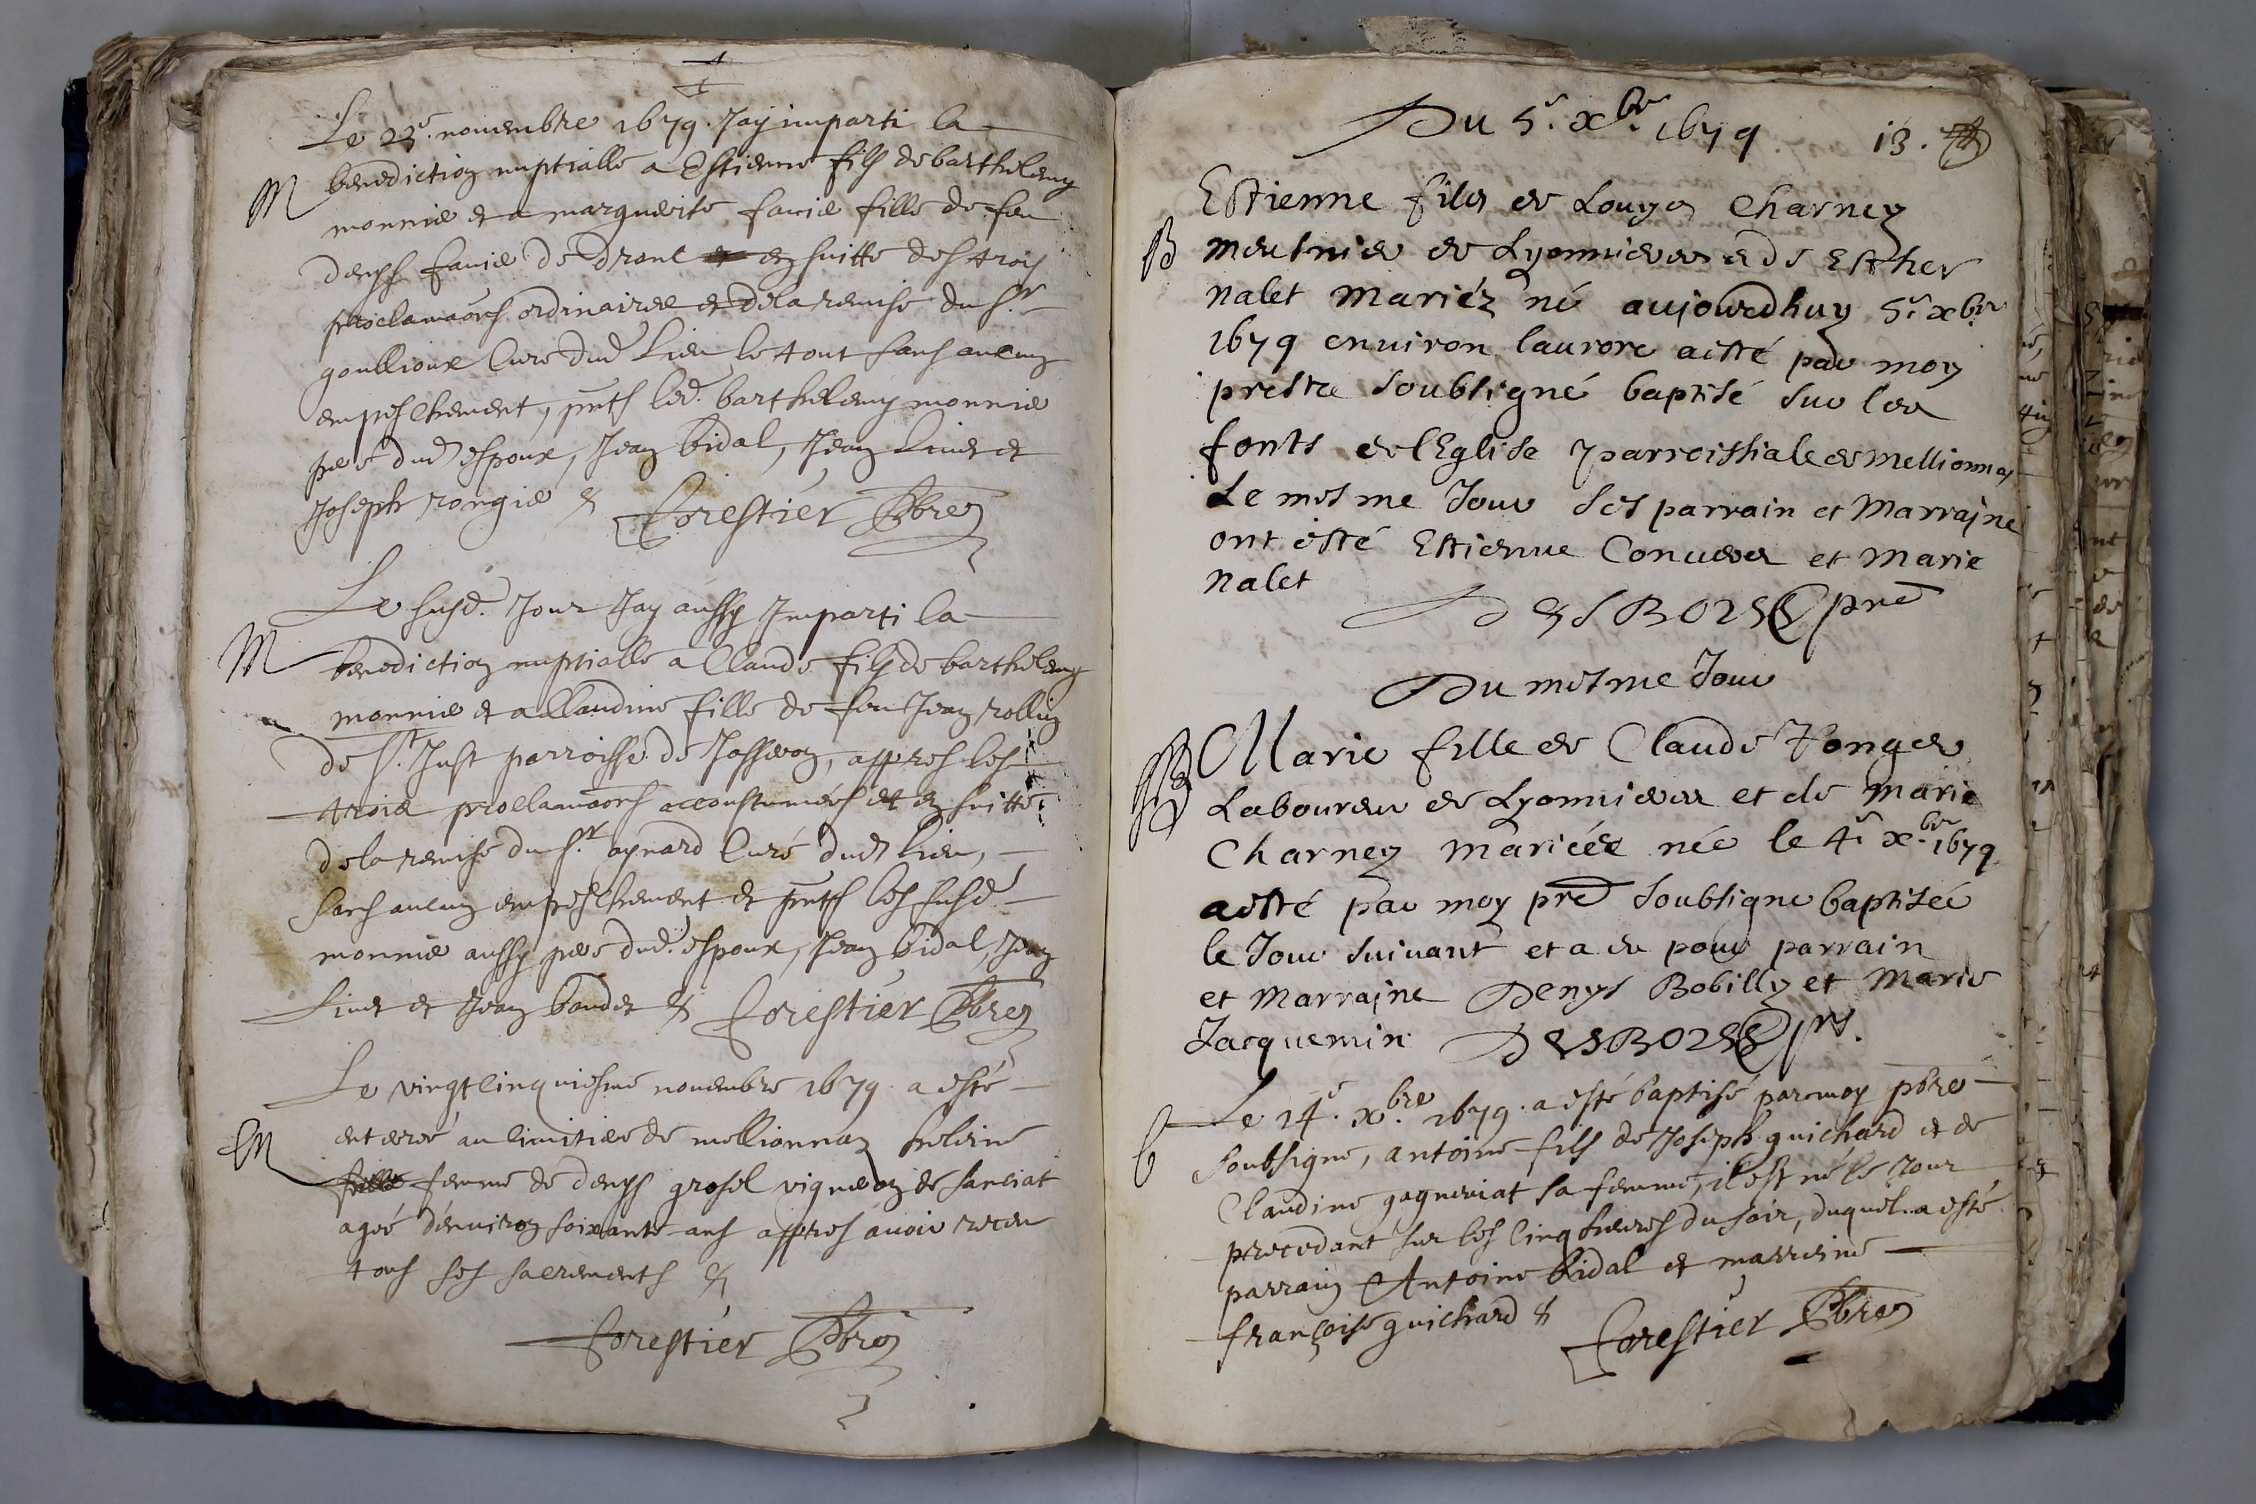 Le 23e. novembre 1679. Jay imparti la
M
benediction nuptialle a Estienne fils de barthelemy
monnier et a marguerite favier fille de feu
denys favier de Drom en suitte des trois
proclamaons ordinaires et de la remise du Sr
goullioux Curé dud lieu le tout sans aucun
empeschement, pnts led. barthelemy monnier
pere dud espoux, Jean bidal, Jean et
Joseph rongier & Forestier Pbre
Le susd. Jour Jay aussy Imparti la
M
benediction nuptialle a Claude fils de barthelemy
monnier et a Claudine fille de feu Jean rollin
de St. Just parroisse de Jasseron, appres les
trois proclamaons accoustumées et en suitte
de la remise du Sr aynard Curé dud lieu,
sans aucun empeschement et pnts les susd
monnier aussy pere dud. espoux, Jean bidal, Jean
et Jean baudet & Forestier Pbre
Le vingt cinquiesme novembre 1679 a esté
M
enterré au cimitiere de mellionnaz heleine
fille femme de denys grosel vigneron de sanciat
agée d'environ soixante ans appres avoir receu
tous ses sacrements &
Forestier Pbre
Du 5e. xbre 1679
13.
Estienne fils de Louys Charney
B
meusnier de Lyonnieres et de Esther
nalet mariéz né aujourdhuy 5e xbre
1679 environ laurore a esté par moy
prestre soubsigné baptisé sur les
fonts de lEglise parroissiale de Mellionnas
Le mesme Jour ses parrain et Marrajne
ont esté Estienne Convers et Marie
nalet
DESBORDES pre
Du mesme Jour
B
Marie fille de Claude Ronger
Laboureur de Lyonnieres et de Marie
Charney mariées née le 4e xbre 1679
a esté par moy pre soubsigne baptisée
le Jour suivant et a eu pour parrain
et Marrajne Denys Bobilly et Marie
Jacquemin DESBORDES pre.
Le 14e. xbre. 1679. a esté baptisé par moy pbre
b
soubsigne, antoine fils de Joseph guichard et de
Claudine gagneriat sa femme, il est né le Jour
precedant sur les cinq heures du soir, duquel a esté
parrain Antoine bidal et marreine
françoise guichard &
Forestier Pbre